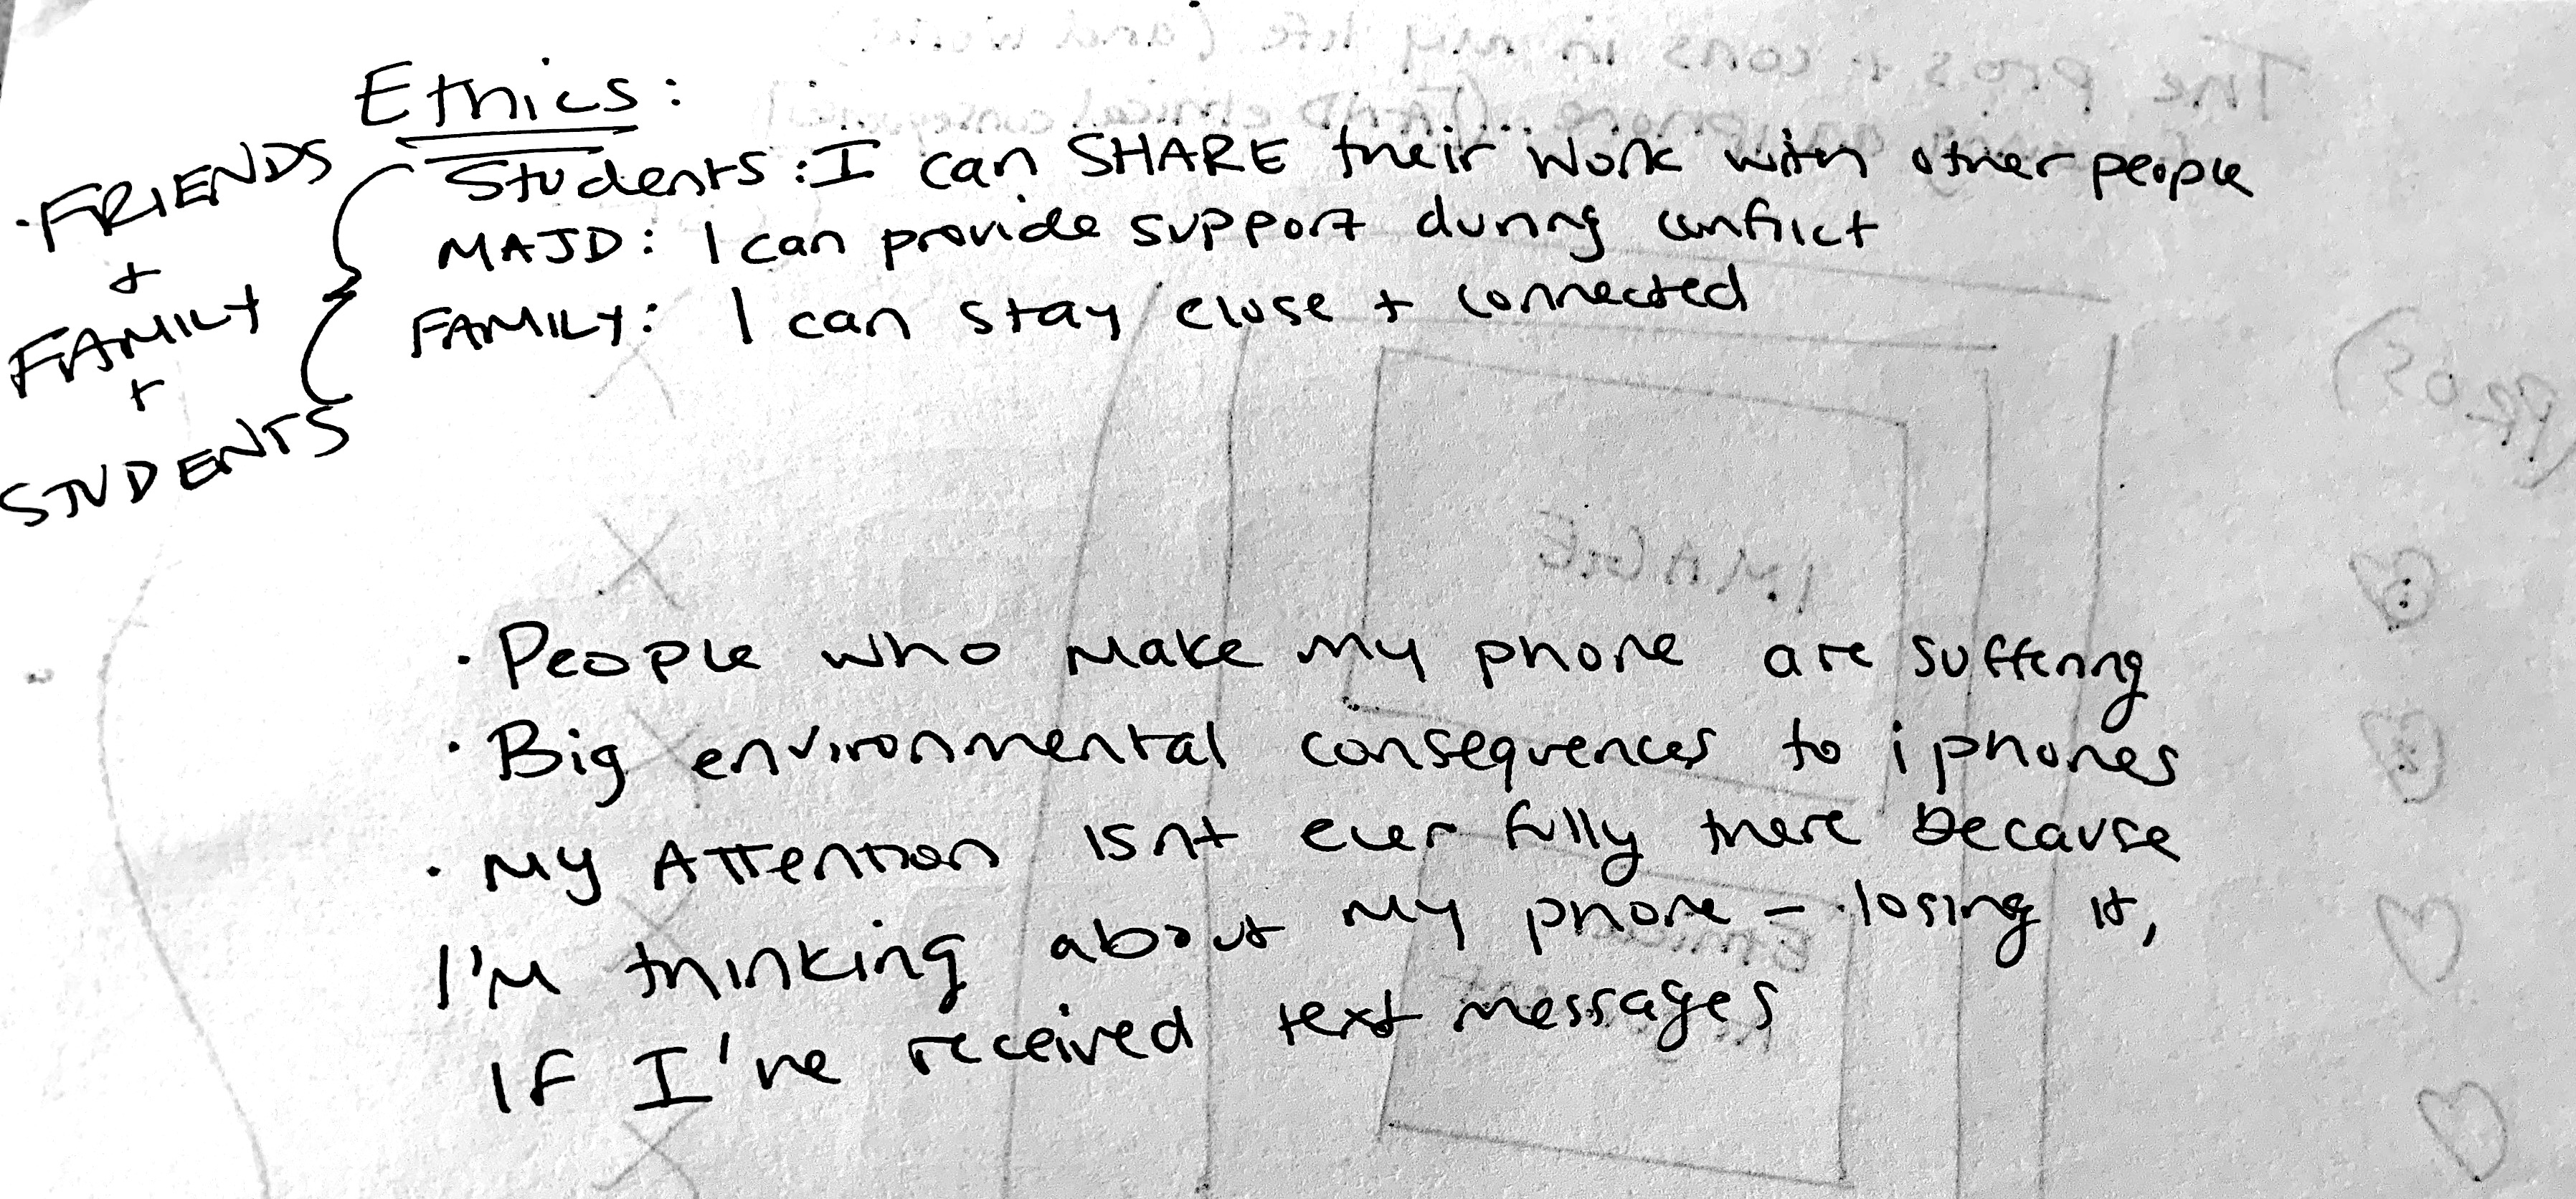 Ethics:
· FRIENDS
+
FAMILY
+
STUDENTS
Students: I can SHARE their work with other people
MAJD: I can provide support during conflict
FAMILY: I can stay close + connected
· People who make my phone are suffering
· Big environmental consequences to iphones
· My Attention isnt ever fully there because
I'm thinking about my phone - losing it,
IF I've received text messages
The pros + cons in my life (and world)
(PROS)
IMAGE